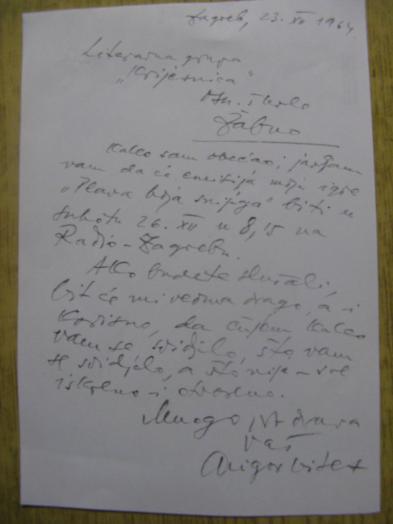 Zagreb, 23. XII 1964.
Literarna grupa
„Krijesnica“
Osn. škola
Žabno
Kako sam obećao, javljam
vam da će emisija moje igre
„Plava boja snijega“ biti u
subotu 26. XII u 8,15 na
Radio-Zagrebu.
Ako budete slušali,
bit će mi veoma drago, a i
korisno, da čujem kako
vam se svidjelo, što vam
se svidjelo, a što nije – sve
iskreno i otvoreno.
Mnogo pozdrava
vaš
Grigor Vitez